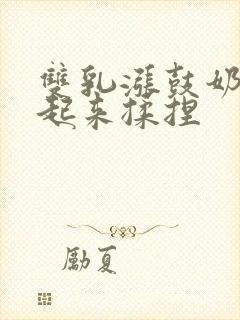 雙乳漲鼓奶
起来揉捏
勵夏